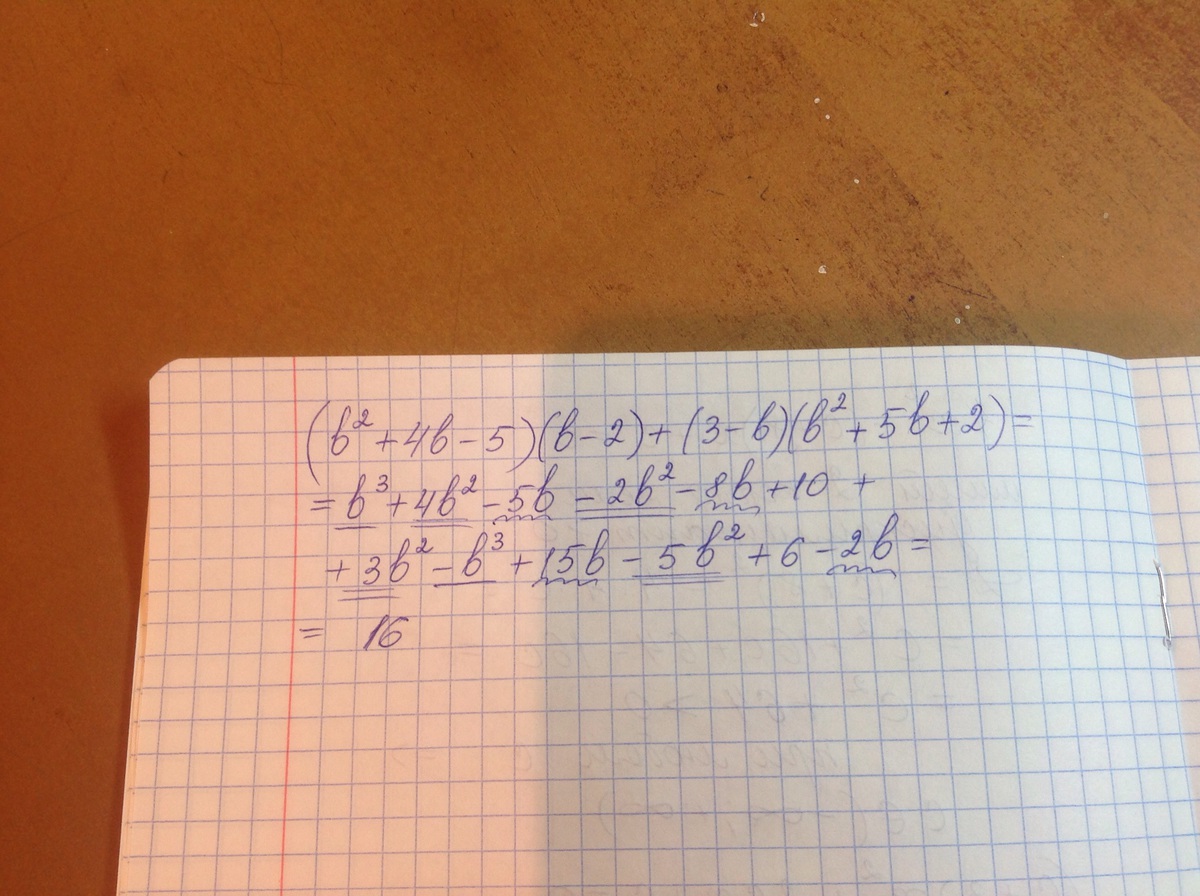 (b² + 4b − 5)(b − 2) + (3 − b)(b² + 5b + 2) =
= b³ + 4b² − 5b − 2b² − 8b + 10 +
+ 3b² − b³ + 15b − 5b² + 6 − 2b =
= 16